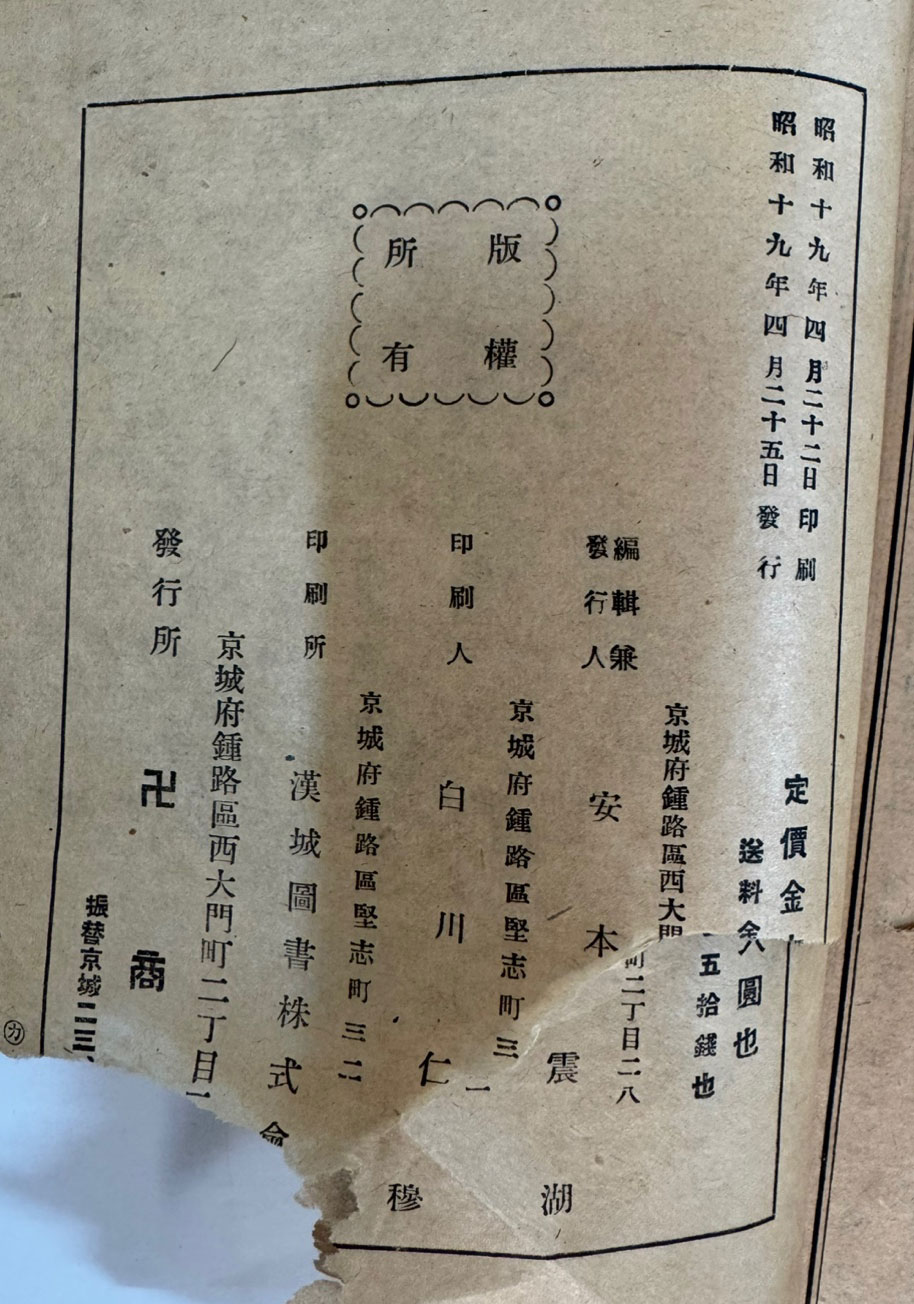 昭和十九年四月二十二日印刷
昭和十九年四月二十五日發行
定價金
圓也
送料金
五拾錢也
版權
所有
京城府鍾路區西大門町二丁目二八
編輯兼
發行人
安本震湖
京城府鍾路區堅志町三二
印刷人
白川仁穆
京城府鍾路區堅志町三二
印刷所
漢城圖書株式會
京城府鍾路區西大門町二丁目
發行所
卍商
振替京城二三
カ